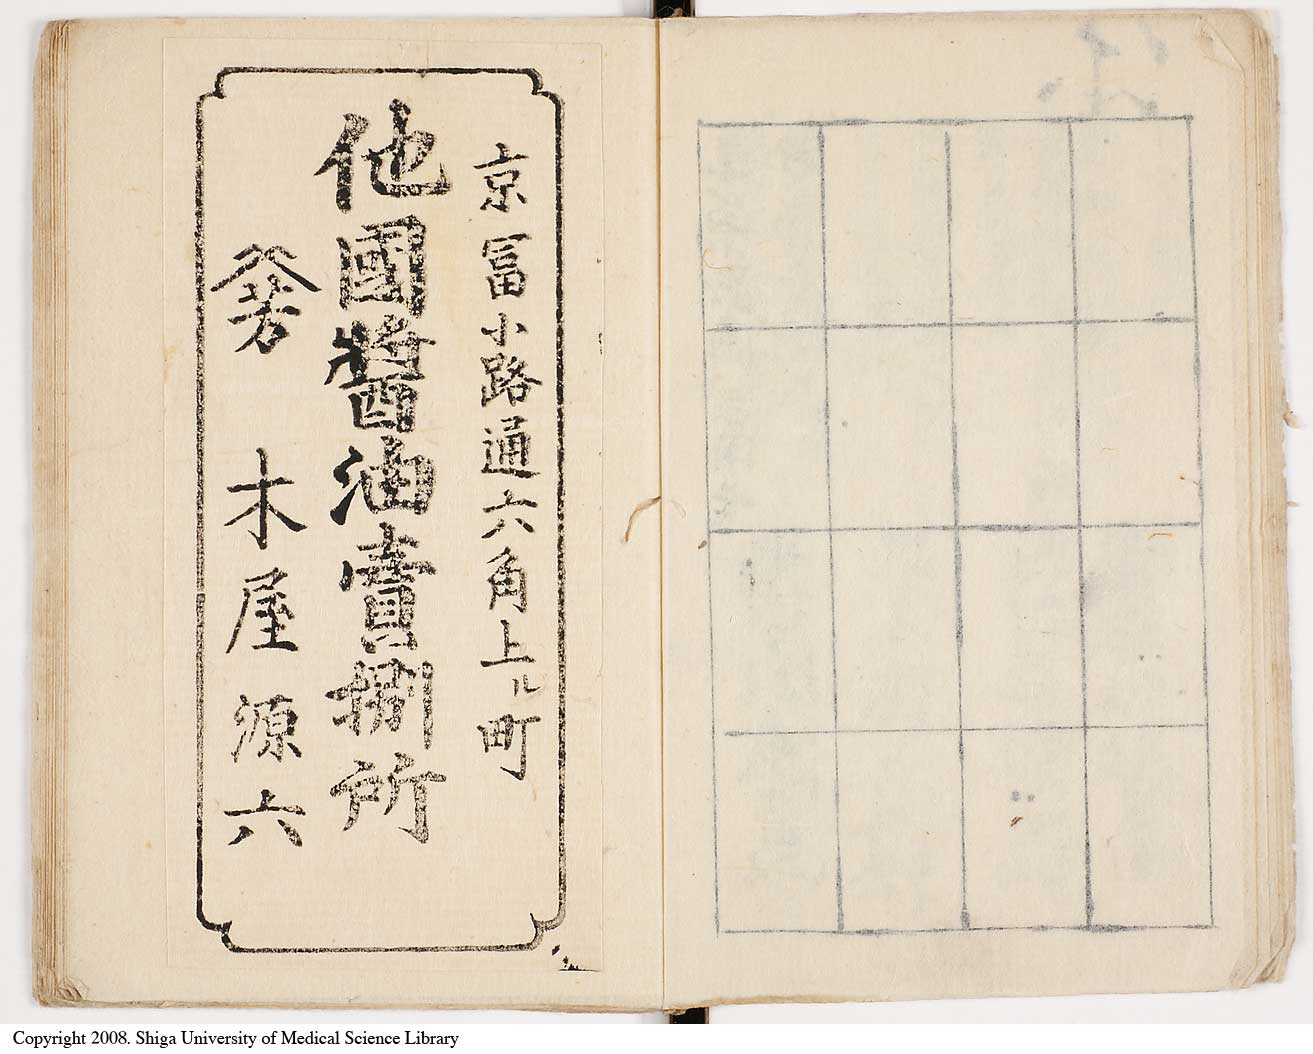 京冨小路通六角上ル町
他國醬油賣捌所
芳 木屋源六
Copyright 2008. Shiga University of Medical Science Library